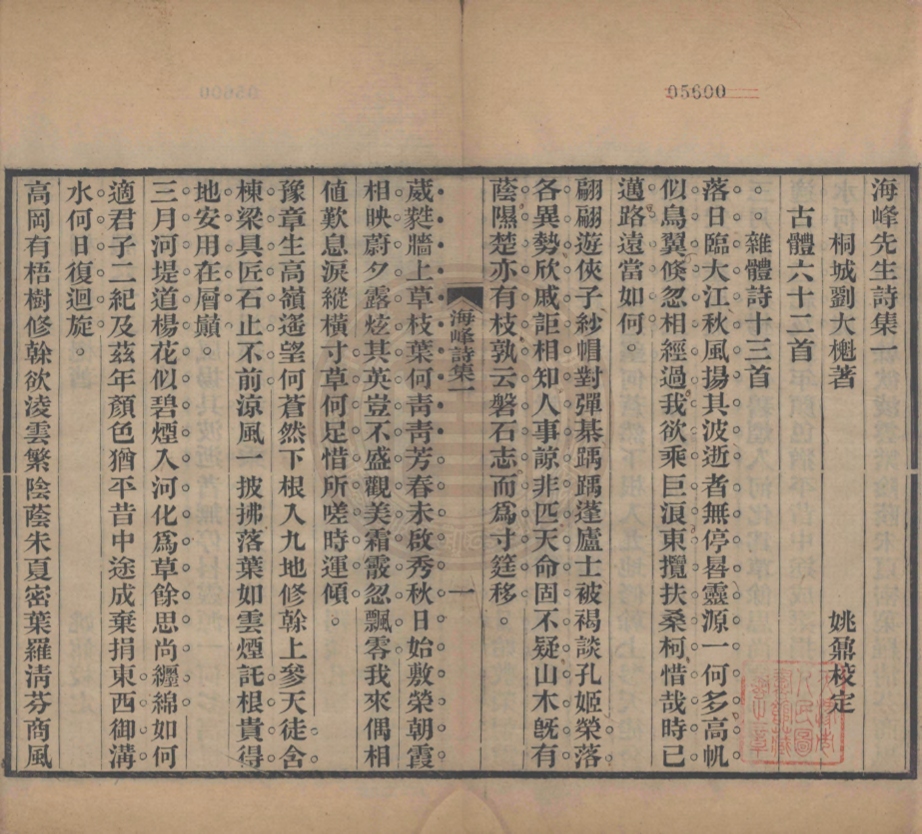 05600
海峰先生詩集一
桐城劉大櫆著　姚鼐校定
古體六十二首
雜體詩十三首
落日臨大江秋風揚其波逝者無停晷靈源一何多高帆
似鳥翼倏忽相經過我欲乘巨浪東攬扶桑柯惜哉時已
邁路遠當如何
翩翩遊俠子紗帽對彈棊踽踽蓬廬士被褐談孔姬榮落
各異勢欣戚詎相知人事諒非匹天命固不疑山木旣有
蔭隰楚亦有枝孰云磐石志而爲寸筳移
海峰詩集一　一
葳蕤牆上草枝葉何靑靑芳春未啟秀秋日始敷榮朝霞
相映蔚夕露炫其英豈不盛觀美霜霰忽飄零我來偶相
値歎息淚縱橫寸草何足惜所嗟時運傾
豫章生高嶺遙望何蒼然下根入九地修榦上參天徒含
棟梁具匠石止不前涼風一披拂落葉如雲煙託根貴得
地安用在層巔
三月河堤道楊花似碧煙入河化爲草餘思尚纏綿如何
適君子二紀及茲年顏色猶平昔中途成棄捐東西御溝
水何日復迴旋
高岡有梧樹修榦欲淩雲繁陰蔭朱夏密葉羅淸芬商風